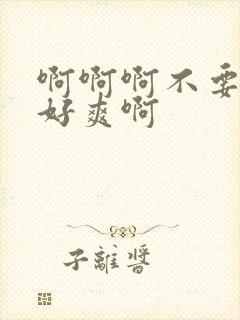 啊啊啊不要
好爽啊
子離醬